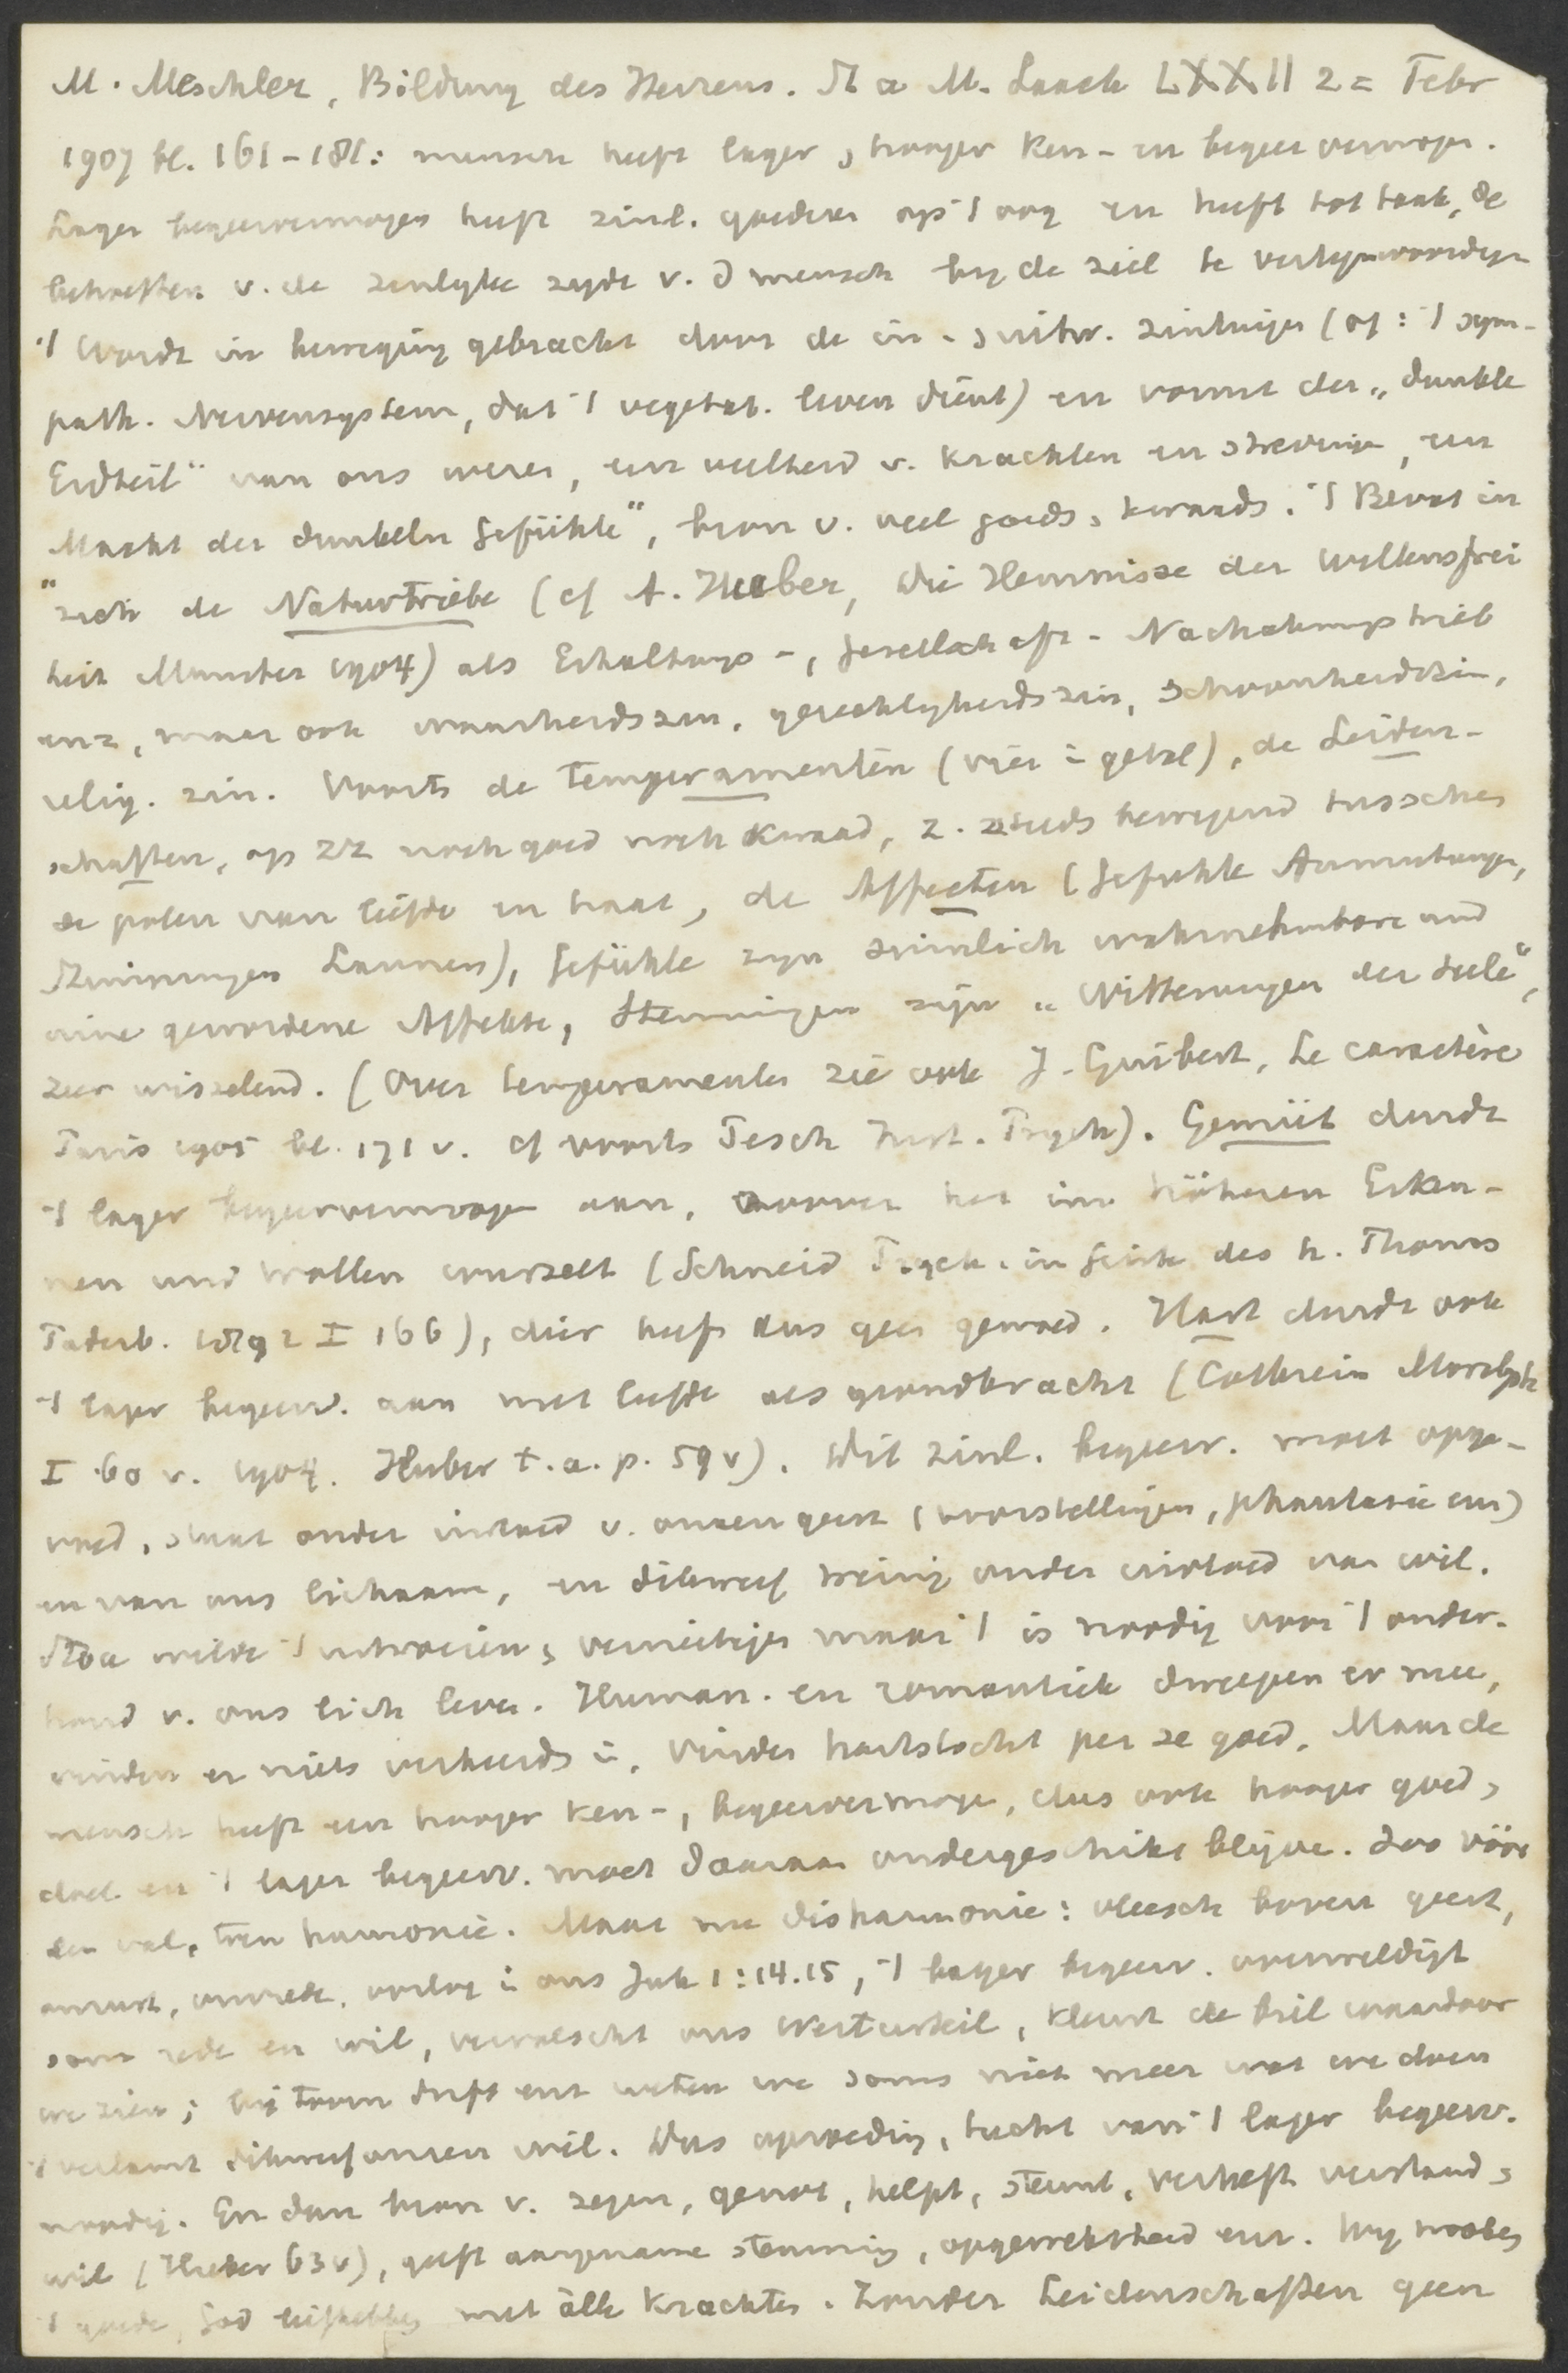 M. Meschler, Bildung des Herzens. St a M. Laach LXXII 2 = Febr
1907 bl. 161-181: mensch heeft lager, hooger Ken- en begeervermogen.
Lager begeervermogen heeft zinl. goederen op 't oog en heeft tot taak, de
behoeften v. de zinlyke zyde v. d mensch by de ziel te vertegenwoordigen
't Wordt in beweging gebracht door de in- uitw. zintuigen (of: 't sym-
path. Nervensystem, dat 't vegetat. leven dient) en vormt der „dunkle
Erdteil" van ons wezen, een veelheid v. krachten en strevingen, een
Macht der dunkeln Gefühle", bron v. veel goeds, kwaads. 't Bevat in
zich de Naturtriebe (cf A. Huber, Die Hemnisse der Willensfrei
heit Munster 1904) als Erhaltungs-, Gesellschafts- Nachahmungstrieb
enz, maar ook waarheidszin, gerechtigheidszin, schoonheidszin,
relig. zin. Voorts de temperamenten (vier in getal), de Leiden-
schaften, op zz noch goed noch kwaad, z. steeds bewegend tusschen
de polen van liefde en haat, de Affecten (Gefühle Anmutungen,
Stimmungen Launen), Gefühle zyn sinnlich wahrnehmbare und
eine gewordene Affekte, Stemmingen zijn „Witterungen der Seele",
zeer wisselend. (Over temperamenten zie ook J. Guibert, Le caractère
Paris 1905 bl. 171 v. cf voorts Pesch Inst. Psych). Gemüt duidt
't lager begeervermogen aan, voorzoover het im höheren Erken-
nen und Wollen wurzelt (Schneid Psych. im Geiste des h. Thomas
Paderb. 1892 I 166), dier heeft dus geen gemoed. Hart duidt ook
't lager begeerv. aan met liefde als grondkracht (Cathrein Moralph
I 60 v. 1904. Huber t.a.p. 59 v). Dit zinl. begeerv. moet opge-
voed, staat onder invloed v. onzen geest (voorstellingen, phantasie enz)
en van ons lichaam, en dikwerf weinig onder invloed van wil.
Stoa wilde 't uitroeien, vernietigen maar 't is noodig voor 't onder-
houd v. ons lich leven. Human. en romantiek dweepen er mee,
vinden er niets verkeerds in, vinden hartstocht per se goed. Maar de
mensch heeft een hooger ken-, begeervermogen, dus ook hooger goed,
doel en 't lager begeerv. moet daaraan ondergeschikt blijven. Zoo vóór
den val, toen harmonie. Maar nu disharmonie: vleesch boven geest,
onrust, onvrede, oorlog in ons Jak 1:14.15, 't lager begeerv. overweldigt
soms rede en wil, vervalscht ons Werturteil, kleurt de bril waardoor
we zien; bij toorn drift enz weten we soms niet meer wat we doen
't verlamt dikwerf onzen wil. Dus opvoeding, tucht van 't lager begeerv.
noodig. En dan bron v. zegen, genot, helpt, steunt, verheft verstand,
wil (Huber 63v), geeft aangename stemming, opgewektheid enz. Wy moeten
't goede, God liefhebben met àlle krachten. Zonder Leidenschaften geen